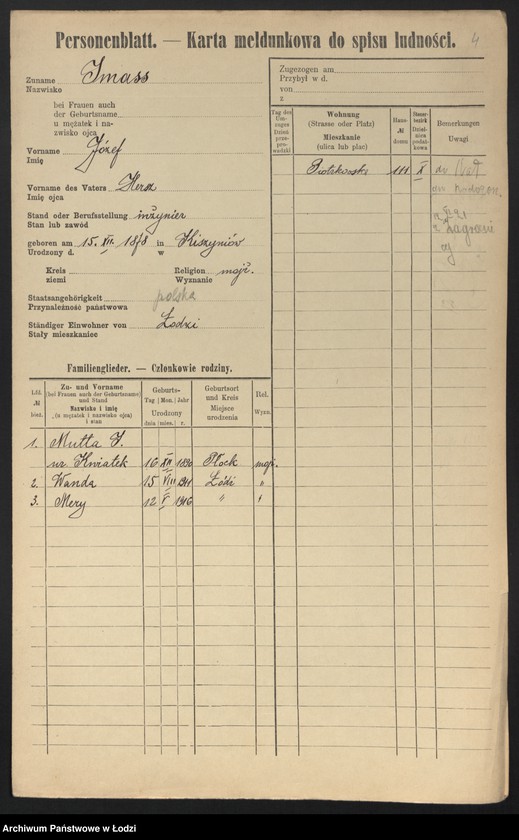 Personenblatt. — Karta meldunkowa do spisu ludności.
4
Zuname Imass
Nazwisko
bei Frauen auch
der Geburtsname
u mężatek i na-
zwisko ojca
Vorname Józef
Imię
Vorname des Vaters Hersz
Imię ojca
Stand oder Berufsstellung inżynier
Stan lub zawód
geboren am 15. XII. 1878 in Kiszyniów
Urodzony d. w
Kreis Religion mojż.
ziemi Wyznanie
Staatsangehörigkeit polska
Przynależność państwowa
Ständiger Einwohner von Łodzi
Stały mieszkaniec
Zugezogen am
Przybył w d.
von
z
Tag des Um-zuges Dzień prze-pro-wadzki
Wohnung
(Strasse oder Platz)
Mieszkanie
(ulica lub plac)
Haus-
№
domu
Bemerkungen
Uwagi
Piotrkowska 111 X
Familienglieder. — Członkowie rodziny.
Lfd.
№
bież.
Zu- und Vorname
(bei Frauen auch der Geburtsname)
und Stand
Nazwisko i imię
(u mężatek i nazwisko ojca)
i stan
Geburts-
Tag Mon. Jahr
Urodzony
dnia mies. r.
Geburtsort
und Kreis
Miejsce
urodzenia
Rel.
Wyzn.
1. Mutta I.
ur. Kwiatek 16 XII 1890 Płock mojż.
2. Wanda 15 VIII 1911 Łódź "
3. Mery 12 V 1916 " "
Archiwum Państwowe w Łodzi